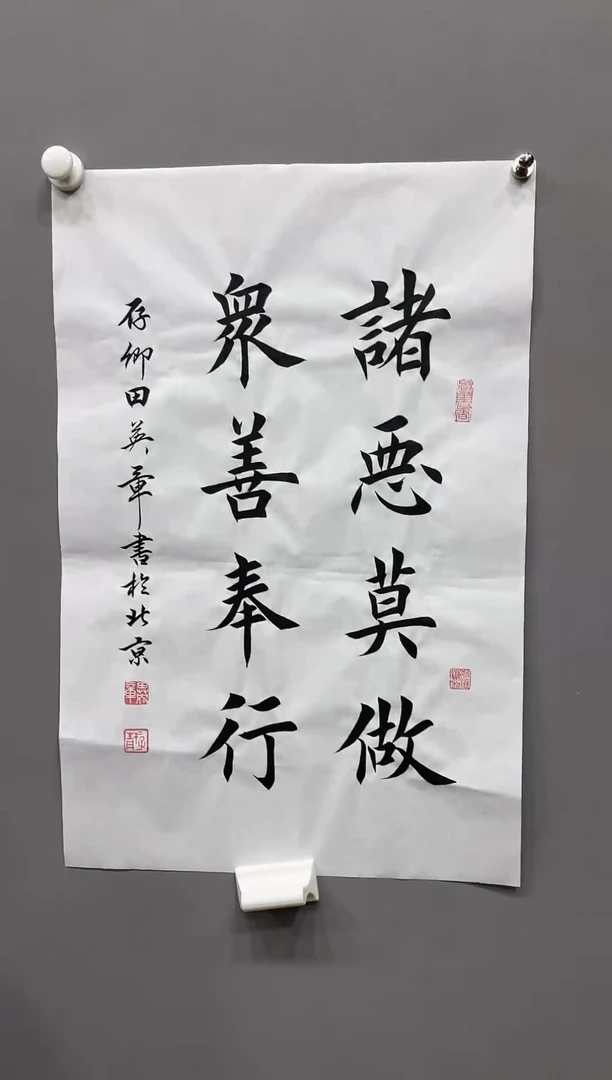 諸惡莫做
衆善奉行
存卿田英章書於北京